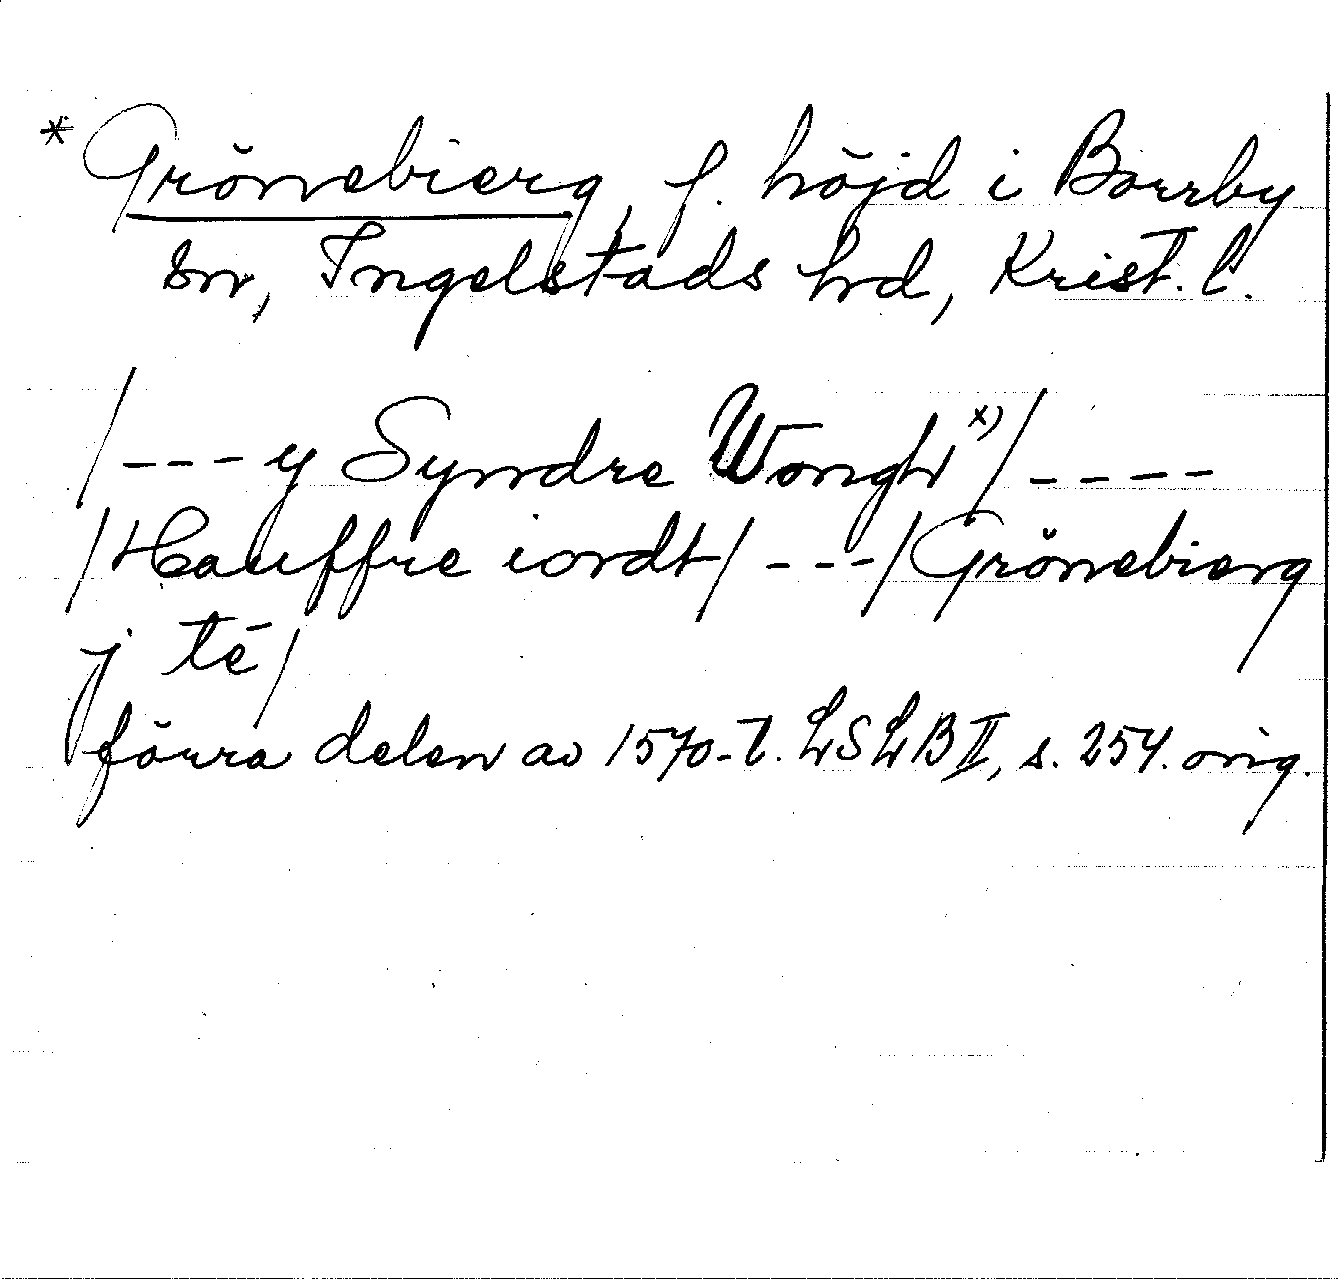 * Grönebierg, f. höjd i Borrby
sn, Ingelstads hd, Krist. l.
/---y Syndre Wongh x)/----
/Hauffre iordt/---/Grönebierg
j té/
förra delen av 1570-t. LSLB II, s. 254. orig.